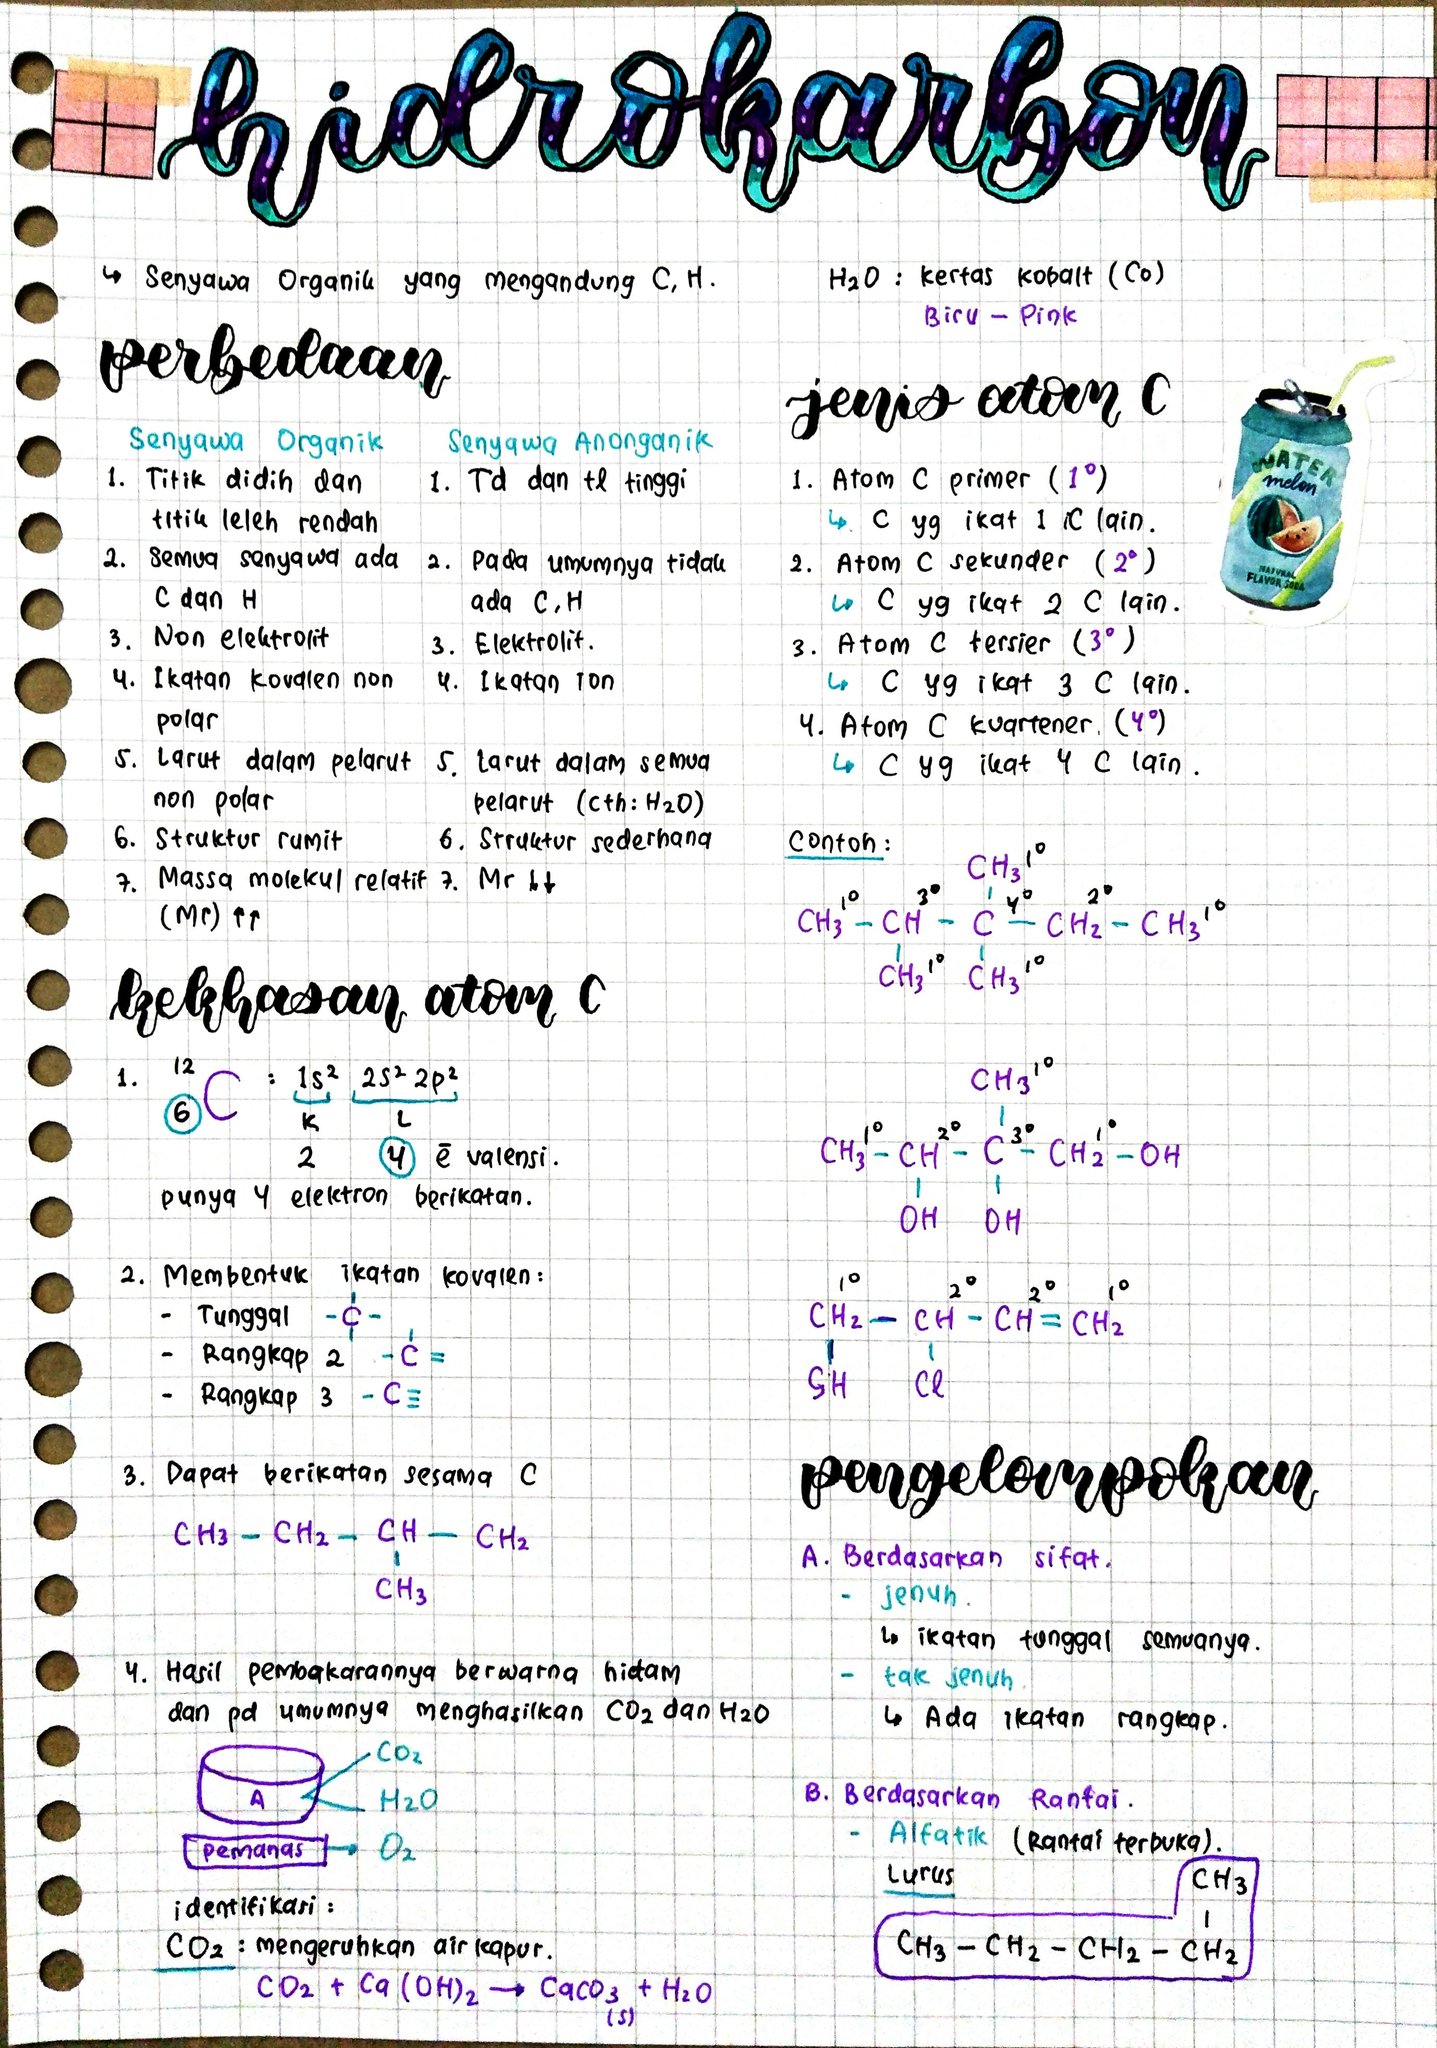 hidrokarbon
↳ Senyawa Organik yang mengandung C, H.
perbedaan
Senyawa Organik
1. Titik didih dan
titik leleh rendah
2. Semua senyawa ada
C dan H
3. Non elektrolit
4. Ikatan kovalen non
polar
5. Larut dalam pelarut
non polar
6. Struktur rumit
7. Massa molekul relatif
(Mr) ↑↑
Senyawa Anonganik
1. Td dan tl tinggi
2. Pada umumnya tidak
ada C, H
3. Elektrolit.
4. Ikatan ion
5. Larut dalam semua
pelarut (cth: H2O)
6. Struktur sederhana
7. Mr ↓↓
kekhasan atom C
1. 12 6 C : 1s² 2s² 2p²
K L
2 4 ē valensi.
punya 4 elektron berikatan.
2. Membentuk ikatan kovalen:
- Tunggal -C-
- Rangkap 2 -C=
- Rangkap 3 -C≡
3. Dapat berikatan sesama C
CH3 - CH2 - CH - CH2
CH3
4. Hasil pembakarannya berwarna hidam
dan pd umumnya menghasilkan CO2 dan H2O
CO2
A H2O
pemanas → O2
identifikasi:
CO2 : mengeruhkan air kapur.
CO2 + Ca(OH)2 → CaCO3 + H2O
(s)
H2O : kertas kobalt (Co)
Biru - Pink
jenis atom C
WATER
melon
NATURAL
FLAVOR SODA
1. Atom C primer (1°)
↳ C yg ikat 1 C lain.
2. Atom C sekunder (2°)
↳ C yg ikat 2 C lain.
3. Atom C tersier (3°)
↳ C yg ikat 3 C lain.
4. Atom C kuartener. (4°)
↳ C yg ikat 4 C lain.
Contoh:
CH3 1°
CH3 1° - CH 3° - C 4° - CH2 2° - CH3 1°
CH3 1° CH3 1°
CH3 1°
CH3 1° - CH 2° - C 3° - CH2 1° - OH
OH OH
1° 2° 2° 1°
CH2 - CH - CH = CH2
SH Cl
pengelompokan
A. Berdasarkan sifat.
- jenuh.
↳ ikatan tunggal semuanya.
- tak jenuh.
↳ Ada ikatan rangkap.
B. Berdasarkan Rantai.
- Alfatik (Rantai terbuka).
Lurus
CH3
CH3 - CH2 - CH2 - CH2